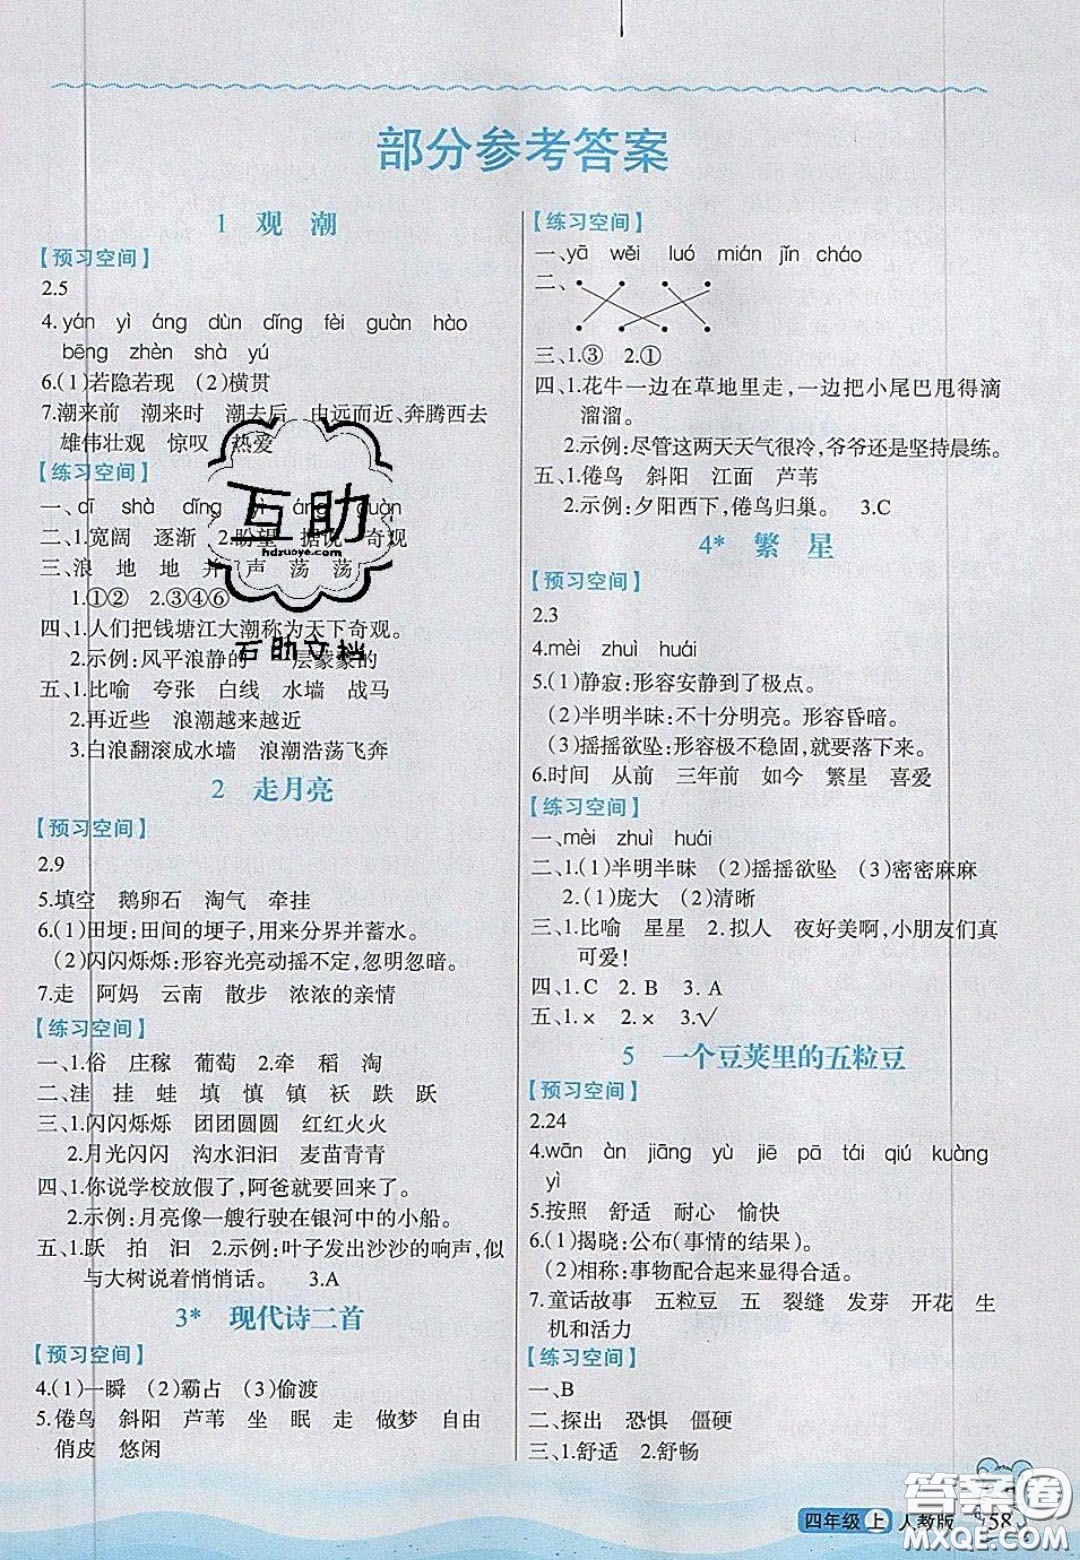 部分参考答案
1 观 潮
【预习空间】
2.5
4.yán yì áng dùn dǐng fèi guàn hào
bēng zhèn shà yú
6.(1)若隐若现 (2)横贯
7.潮来前 潮来时 潮去后 由远而近、奔腾西去
雄伟壮观 惊叹 热爱
【练习空间】
一、dī shà dǐng yì áng guàn
二、1.宽阔 逐渐 2.盼望 据说 奇观
三、浪 地 地 声 荡 荡
1.①② 2.③④⑥
四、1.人们把钱塘江大潮称为天下奇观。
2.示例:风平浪静的 层蒙蒙的
五、1.比喻 夸张 白线 水墙 战马
2.再近些 浪潮越来越近
3.白浪翻滚成水墙 浪潮浩荡飞奔
2 走月亮
【预习空间】
2.9
5.填空 鹅卵石 淘气 牵挂
6.(1)田埂:田间的埂子,用来分界并蓄水。
(2)闪闪烁烁:形容光亮动摇不定,忽明忽暗。
7.走 阿妈 云南 散步 浓浓的亲情
【练习空间】
一、1.俗 庄稼 葡萄 2.牵 稻 淘
二、洼 挂 蛙 填 慎 镇 袄 跌 跃
三、1.闪闪烁烁 团团圆圆 红红火火
2.月光闪闪 沟水汩汩 麦苗青青
四、1.你说学校放假了,阿爸就要回来了。
2.示例:月亮像一艘行驶在银河中的小船。
五、1.跃 拍 汩 2.示例:叶子发出沙沙的响声,似
与大树说着悄悄话。 3.A
3* 现代诗二首
【预习空间】
4.(1)一瞬 (2)霸占 (3)偷渡
5.倦鸟 斜阳 芦苇 坐 眠 走 做梦 自由
俏皮 悠闲
【练习空间】
一、yā wěi luó mián jǐn cháo
二、
三、1.③ 2.①
四、1.花牛一边在草地里走,一边把小尾巴甩得滴
溜溜。
2.示例:尽管这两天天气很冷,爷爷还是坚持晨练。
五、1.倦鸟 斜阳 江面 芦苇
2.示例:夕阳西下,倦鸟归巢。 3.C
4* 繁 星
【预习空间】
2.3
4.mèi zhuì huái
5.(1)静寂:形容安静到了极点。
(2)半明半昧:不十分明亮。形容昏暗。
(3)摇摇欲坠:形容极不稳固,就要落下来。
6.时间 从前 三年前 如今 繁星 喜爱
【练习空间】
一、mèi zhuì huái
二、1.(1)半明半昧 (2)摇摇欲坠 (3)密密麻麻
2.(1)庞大 (2)清晰
三、1.比喻 星星 2.拟人 夜好美啊,小朋友们真
可爱!
四、1.C 2.B 3.A
五、1.× 2.× 3.√
5 一个豆荚里的五粒豆
【预习空间】
2.24
4.wān àn jiāng yù jiē pā tái qiú kuàng
yì
5.按照 舒适 耐心 愉快
6.(1)揭晓:公布(事情的结果)。
(2)相称:事物配合起来显得合适。
7.童话故事 五粒豆 五 裂缝 发芽 开花 生
机和活力
【练习空间】
一、B
二、探出 恐惧 僵硬
三、1.舒适 2.舒畅
互助
hdzuoye.com
互助文档
四年级 上 人教版 58
答案圈
MXQE.COM